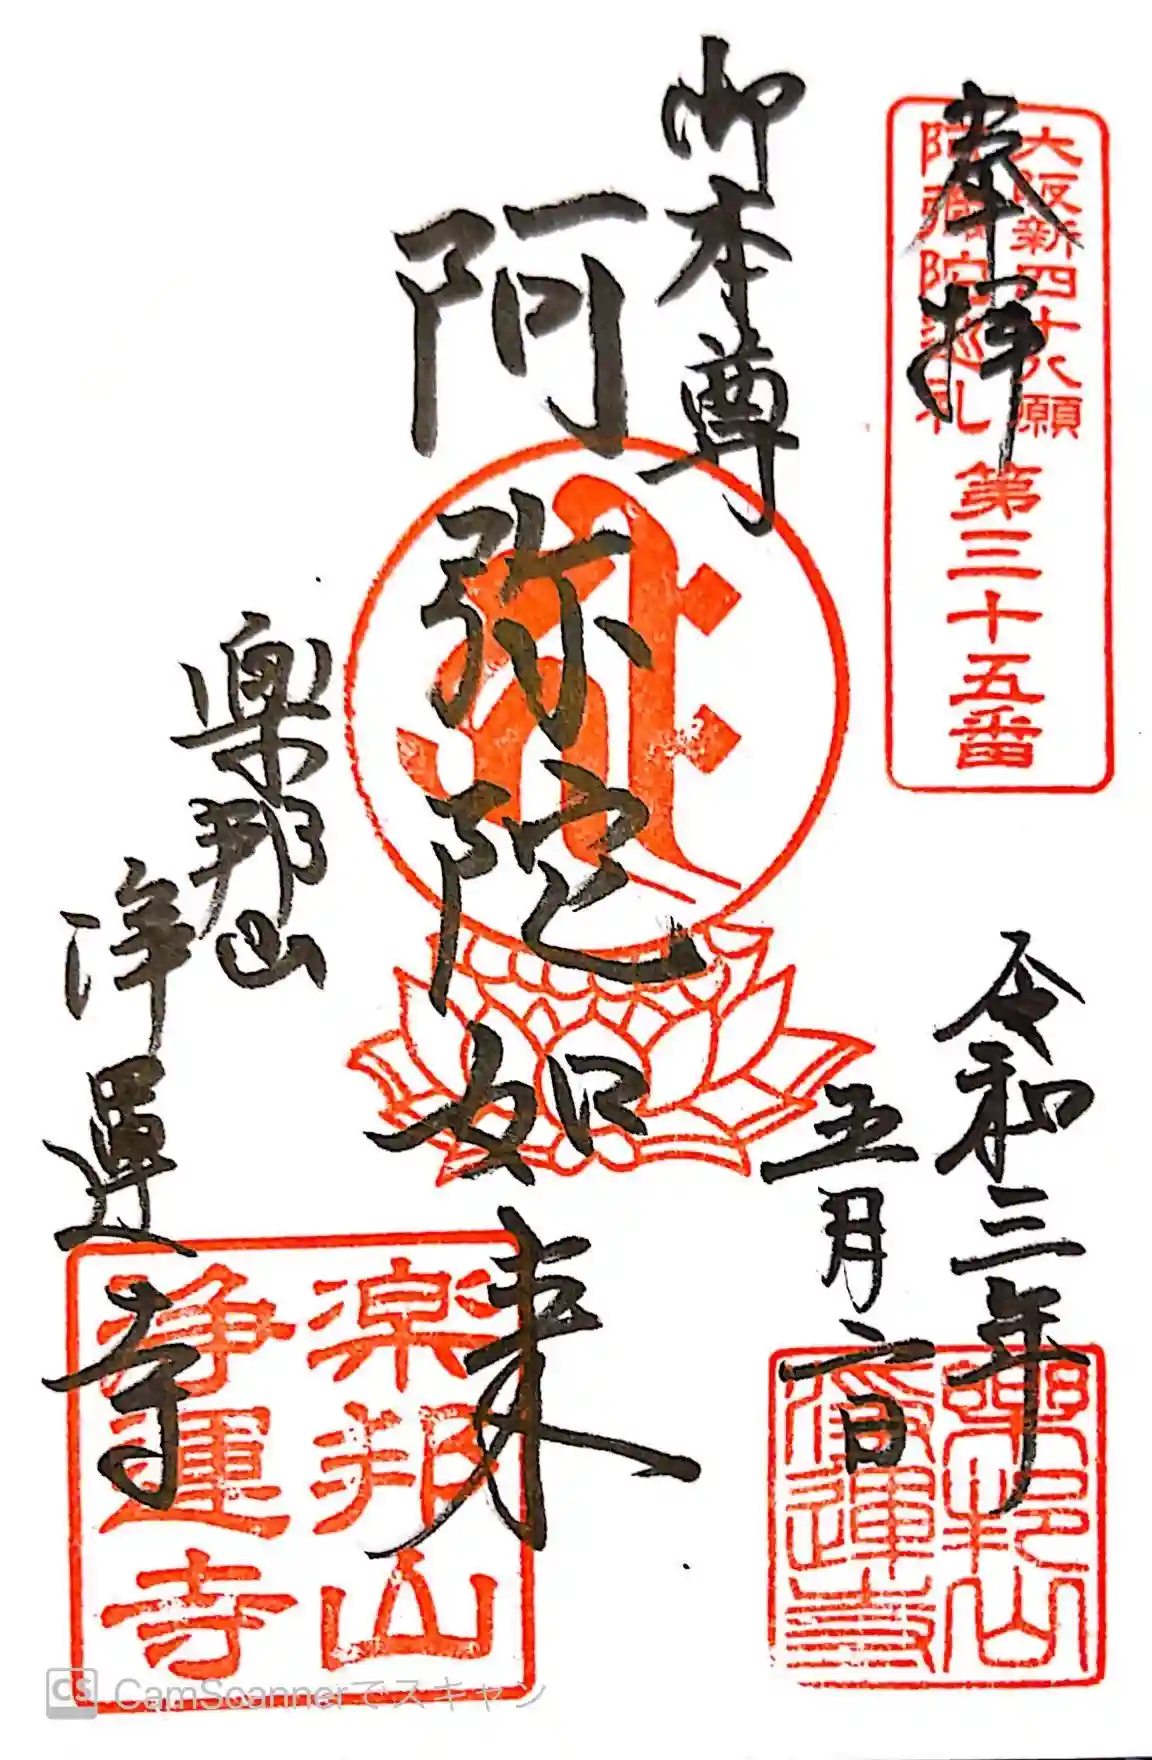 奉拝
大阪新四十八願
阿弥陀巡礼
第三十五番
令和三年
五月六日
御本尊
阿弥陀如来
楽邦山
浄運寺
楽邦山
浄運寺
樂邦山
浄運寺
CS CamScannerでスキャン